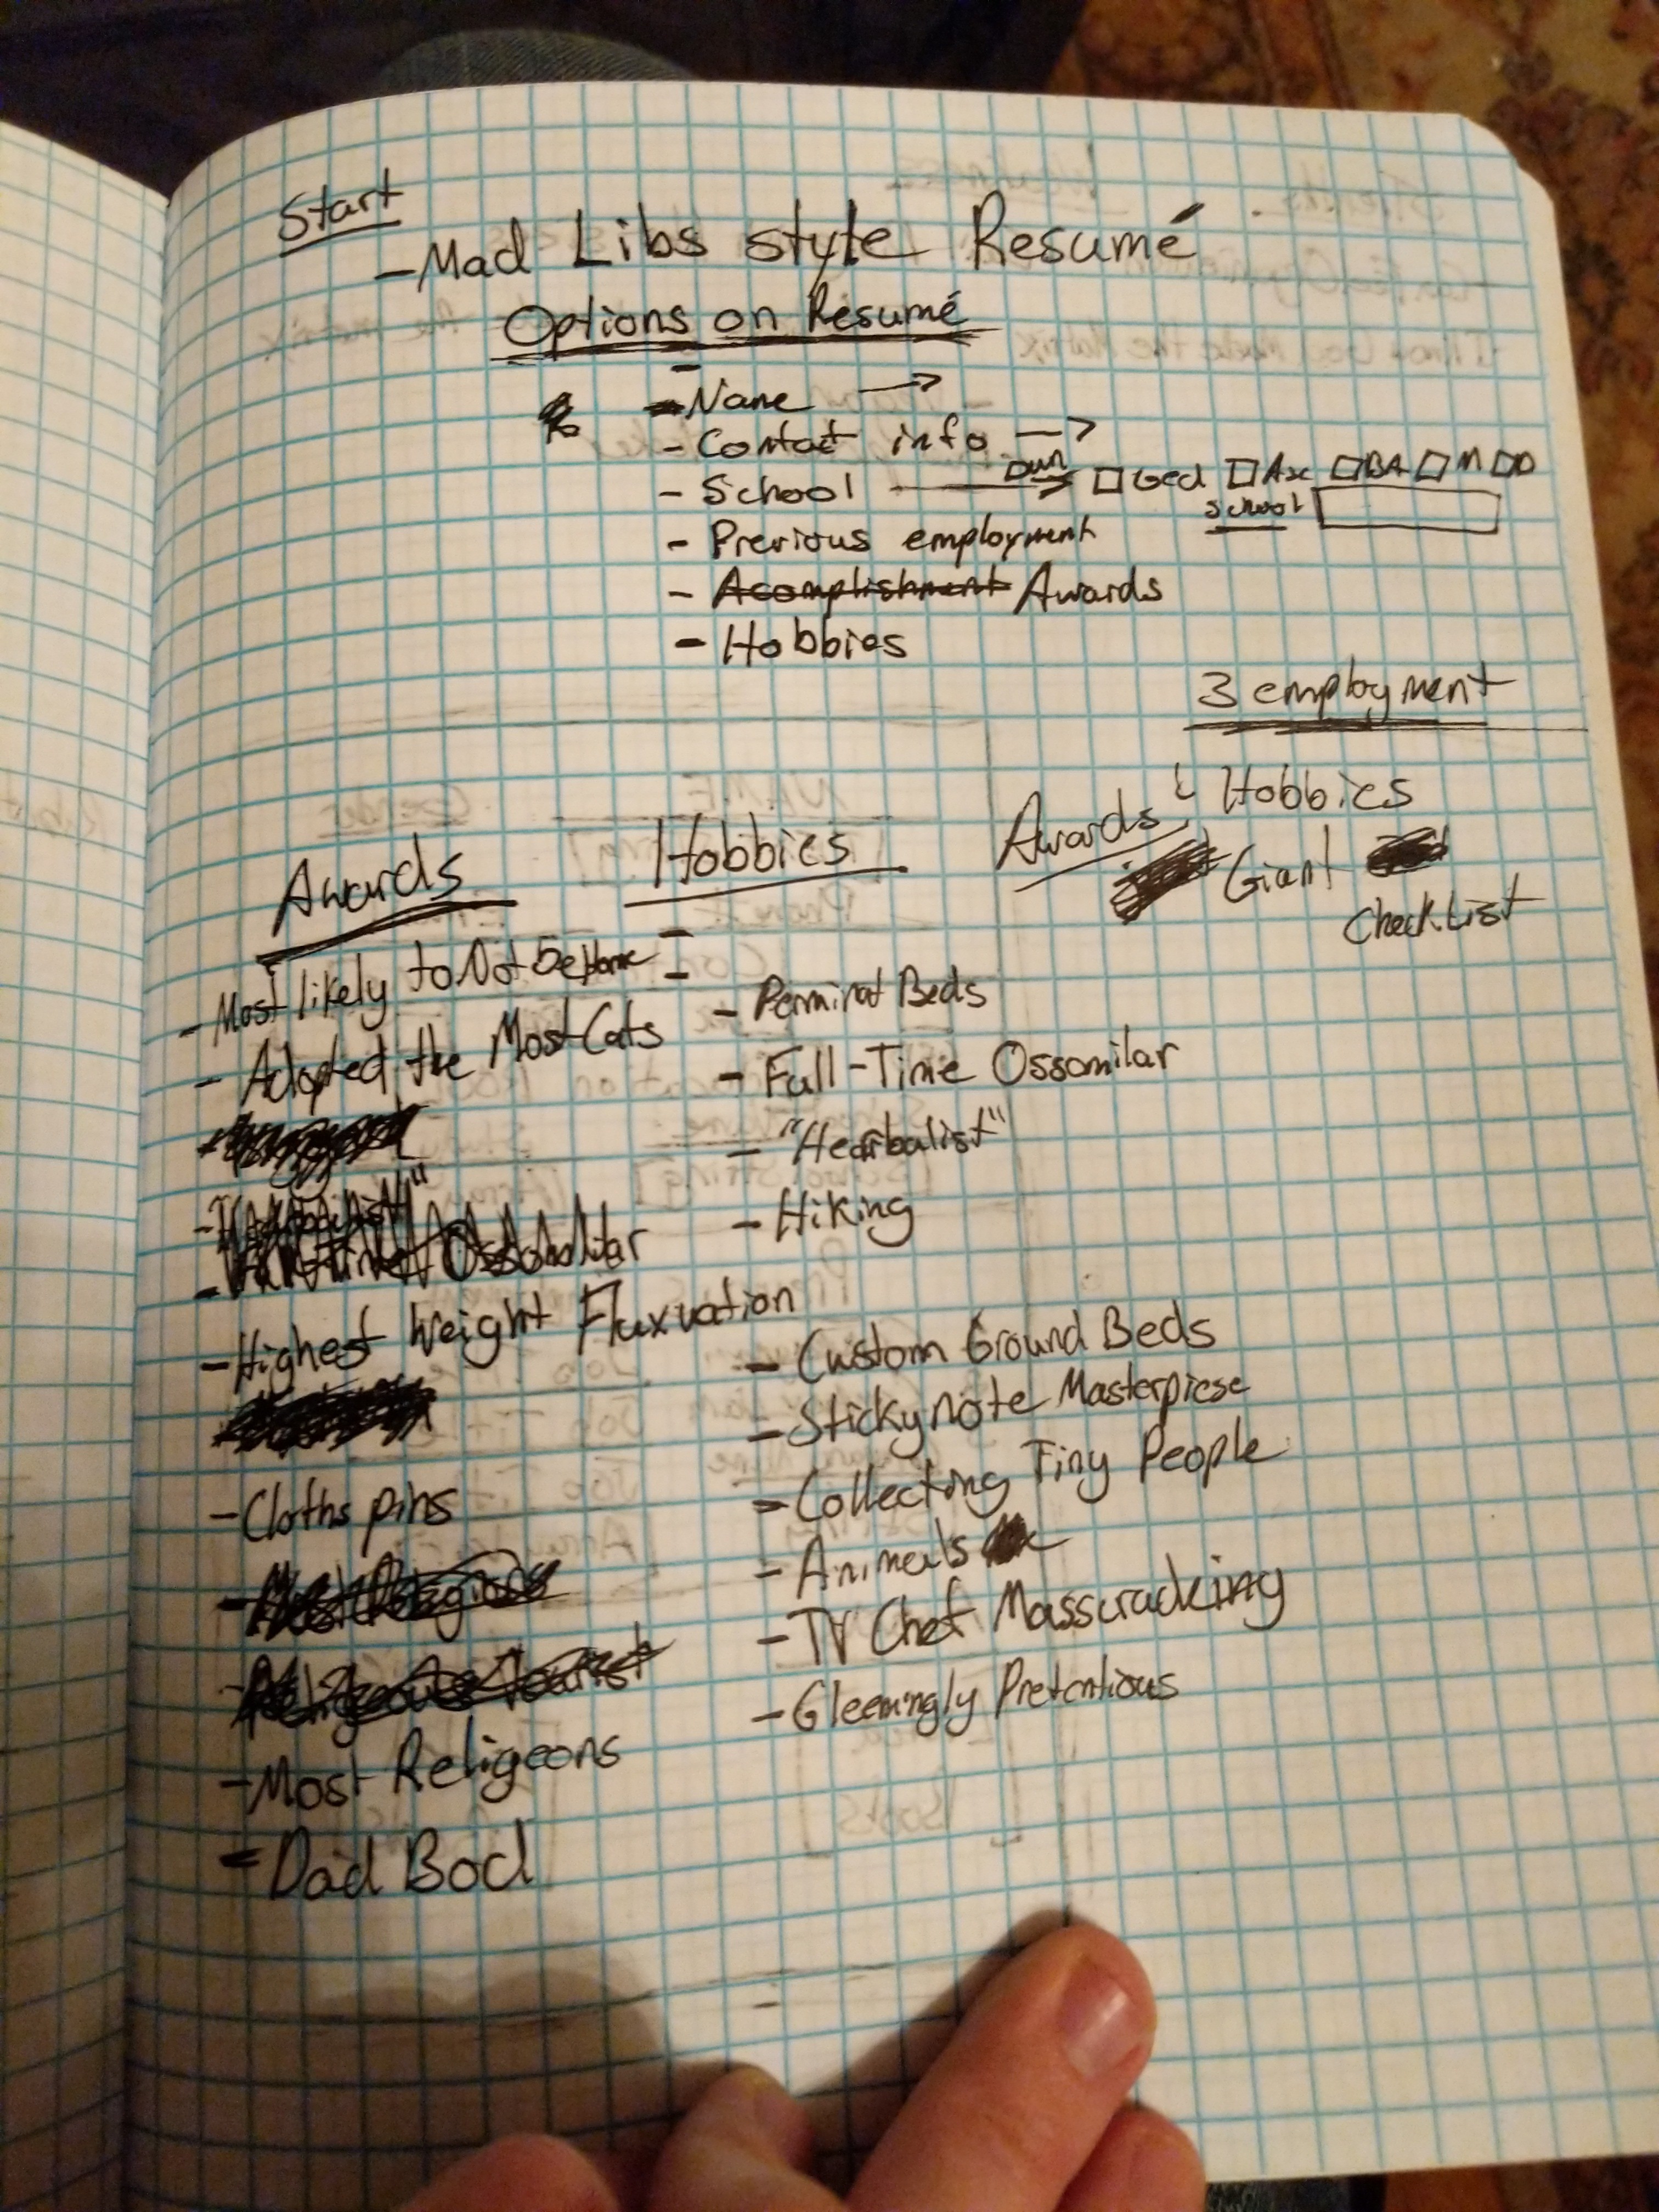 Start
-Mad Libs style Resumé
Options on Resumé
- Name →
- Contact info →
- School → □ Ged □ Asc □ BA □ M □ D
School
- Previous employment
- Acomplishment Awards
- Hobbies
3 employment
Awards & Hobbies
Giant
Check List
Awards
- Most likely to Not Be
- Adopted the Most Cats
- Highest Weight Fluxuation
- Cloths pins
- Most Religeons
- Dad Bod
Hobbies
- Beds
- Full-Time Ossomilar
- "Hearbalist"
- Hiking
- Custom Ground Beds
- Stickynote Masterpiese
- Collecting Tiny People
- Animals
- TV Chef
- Gleemingly Pretentious